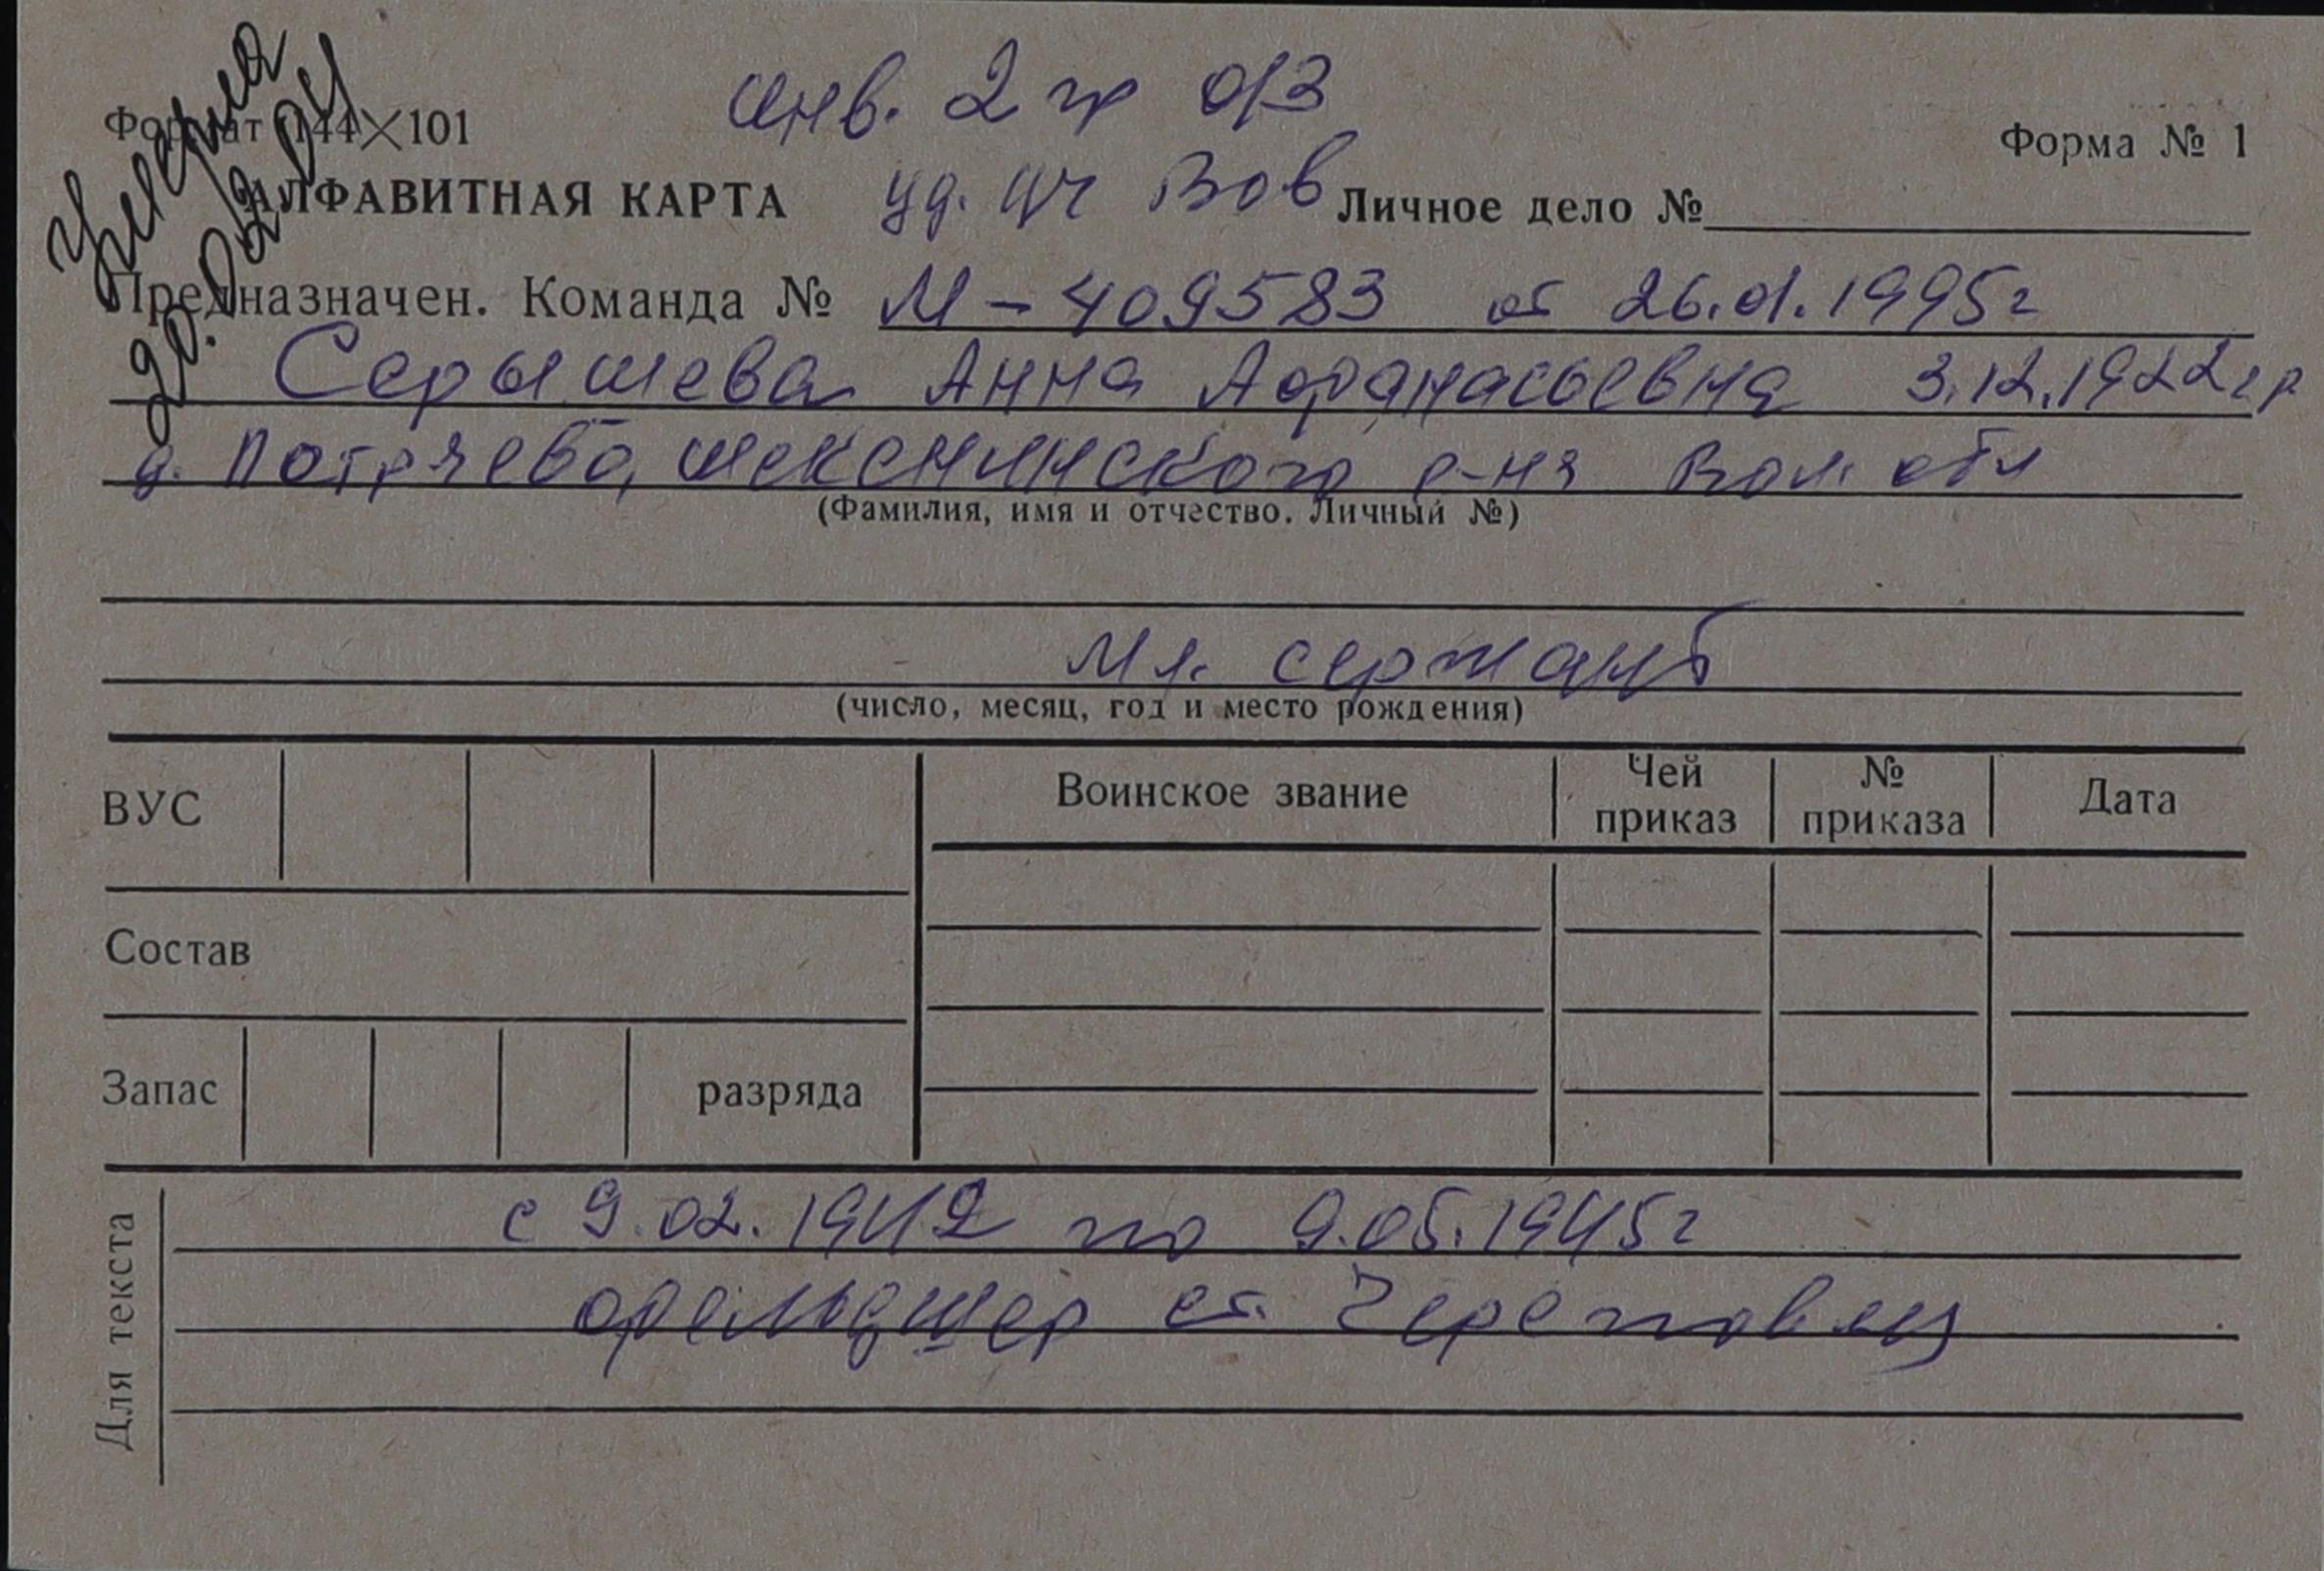 Умерла
20.02.04
инв. 2 гр о/з
Формат 144×101
Форма № 1
АЛФАВИТНАЯ КАРТА уд. уч Вов Личное дело №
Предназначен. Команда № М-409583 от 26.01.1995г
Серышева Анна Афанасьевна 3.12.1922г р
д. Потряево, Шекснинского р-на Вол. обл
(Фамилия, имя и отчество. Личный №)
Мл. сержант
(число, месяц, год и место рождения)
ВУС Воинское звание Чей приказ № приказа Дата
Состав
Запас разряда
Для текста
с 9.02.1942 по 9.05.1945г
фельдшер ст. Череповец